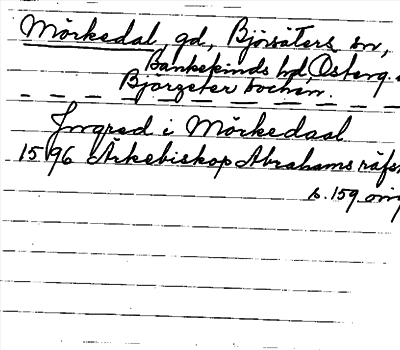 Mörkedal gd, Björsäters sn,
Bankekinds hd, Österg
Björgeter sochen.
Ingred i Mörkedaal
1596 Ärkebiskop Abrahams räfs
b. 159 orig